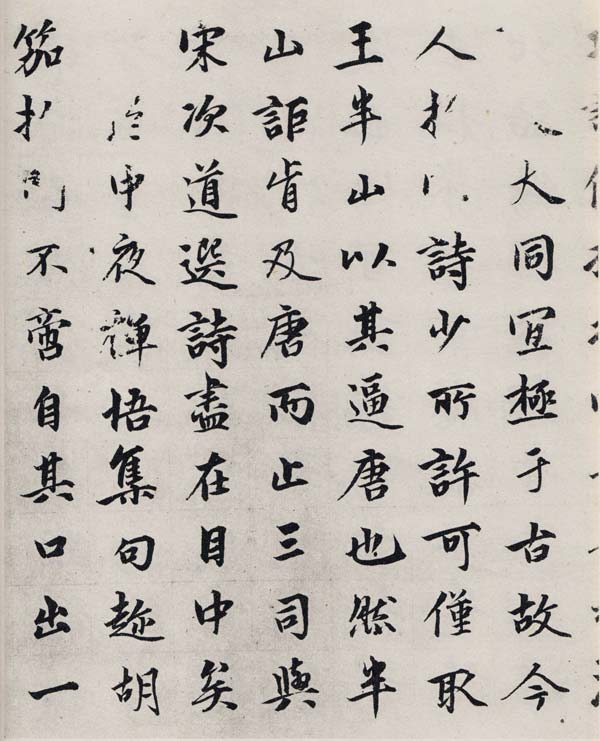 大同宜極于古故今
人於詩少所許可僅取
王半山以其逼唐也然半
山詎肯及唐而止三司與
宋次道選詩盡在目中矣
中夜禪悟集句趂胡
笳十不啻自其口出一